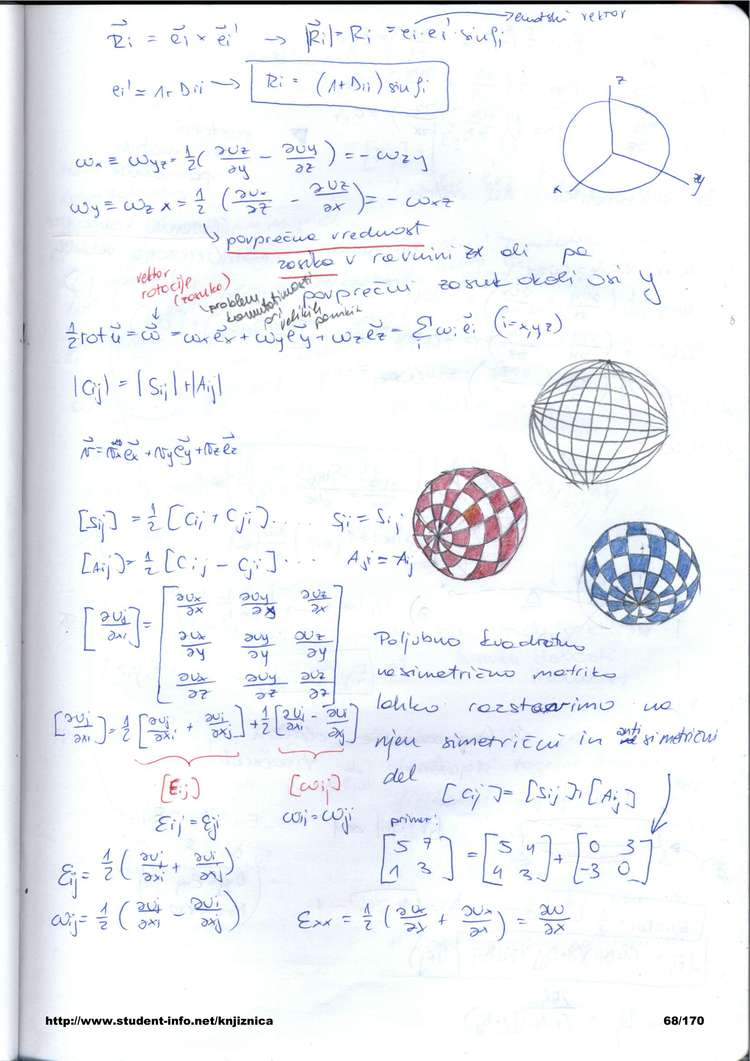 R⃗i = e⃗i × e⃗i' → |R⃗i| = Ri = ei·ei'·sin ρi → enotski vektor
ei' = 1+Dii → Ri = (1+Dii) sin ρi
z
x
y
ωx ≡ ωyz = 1/2 (∂uz/∂y − ∂uy/∂z) = −ωzy
ωy ≡ ωzx = 1/2 (∂ux/∂z − ∂uz/∂x) = −ωxz
↳ povprečna vrednost
zasuka v ravnini zx ali pa
povprečni zasuk okoli osi y
vektor
rotacije
(zasuka)
problem
komutativnosti
pri
velikih
pomikih
1/2 rot u⃗ = ω⃗ = ωx e⃗x + ωy e⃗y + ωz e⃗z = Σi ωi e⃗i (i=x,y,z)
|Cij| = |Sij| + |Aij|
v⃗ = vx e⃗x + vy e⃗y + vz e⃗z
[Sij] = 1/2 [Cij + Cji] .... Sji = Sij
[Aij] = 1/2 [Cij − Cji] ... Aji = −Aij
[∂uj/∂xi] = [∂ux/∂x ∂uy/∂x ∂uz/∂x
∂ux/∂y ∂uy/∂y ∂uz/∂y
∂ux/∂z ∂uy/∂z ∂uz/∂z]
Poljubno kvadratno
nesimetrično matriko
lahko razstavimo na
njen simetrični in antisimetrični
del
[∂uj/∂xi] = 1/2 [∂uj/∂xi + ∂ui/∂xj] + 1/2 [∂uj/∂xi − ∂ui/∂xj]
[Eij] [ωij]
εij = εji ωij = ωji
[Cij] = [Sij] + [Aij]
primer:
[5 7
1 3] = [5 4
4 3] + [0 3
-3 0]
εij = 1/2 (∂uj/∂xi + ∂ui/∂xj)
ωij = 1/2 (∂uj/∂xi − ∂ui/∂xj)
εxx = 1/2 (∂ux/∂x + ∂ux/∂x) = ∂u/∂x
http://www.student-info.net/knjiznica
68/170